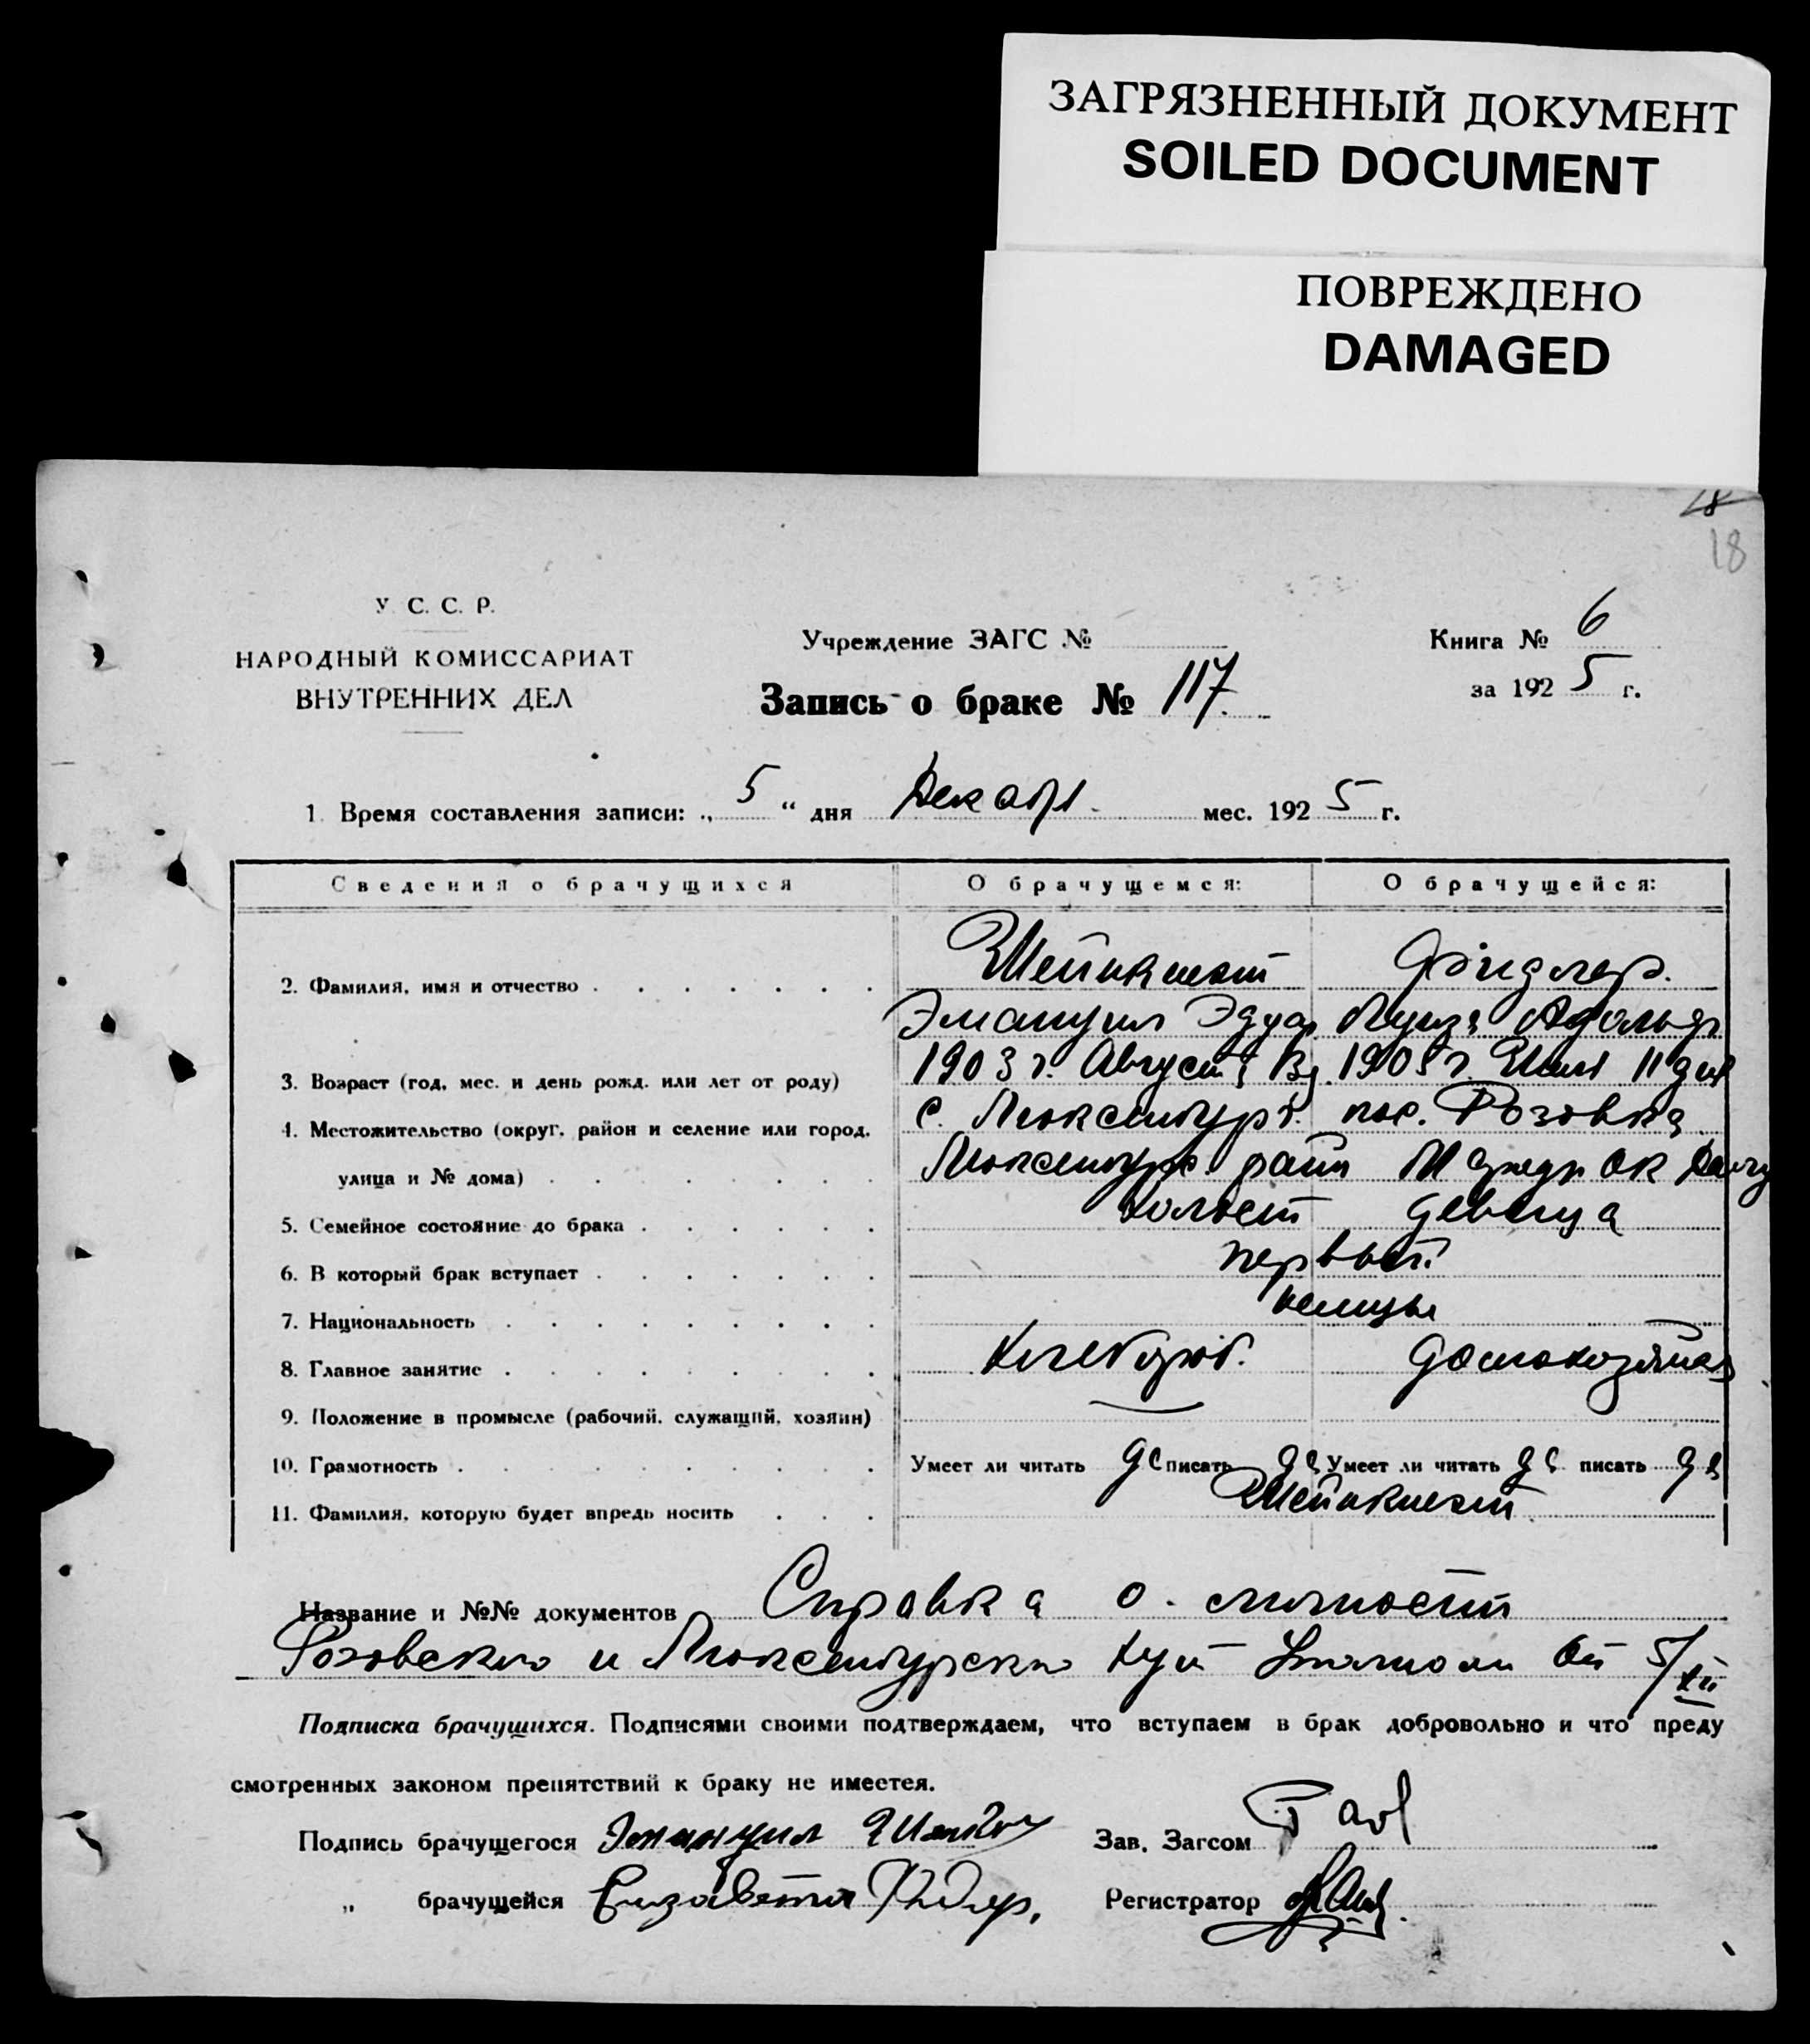 ЗАГРЯЗНЕННЫЙ ДОКУМЕНТ
SOILED DOCUMENT
ПОВРЕЖДЕНО
DAMAGED
18
18
У. С. С. Р.
НАРОДНЫЙ КОМИССАРИАТ
ВНУТРЕННИХ ДЕЛ
Учреждение ЗАГС №
Книга № 6
за 1925 г.
Запись о браке № 117.
1. Время составления записи: „ 5 “ дня Декабр. мес. 1925 г.
Сведения о брачущихся О брачущемся: О брачущейся:
2. Фамилия, имя и отчество Фридлер.
Эмануил Эдуар Луиза Адольф
3. Возраст (год, мес. и день рожд. или лет от роду) 1903 г. Август 1905 г. 11 дня
4. Местожительство (округ, район и селение или город, с. Люксембург. пос. Розовка
улица и № дома) Люксембург. район
5. Семейное состояние до брака холост девица
6. В который брак вступает первый
7. Национальность немцы
8. Главное занятие Хлебороб. домохозяйка
9. Положение в промысле (рабочий, служащий, хозяин)
10. Грамотность Умеет ли читать да писать да Умеет ли читать да писать да
11. Фамилия, которую будет впредь носить
Название и №№ документов Справка о личности
Розовского и Люксембургско от 5/XII
Подписка брачущихся. Подписями своими подтверждаем, что вступаем в брак добровольно и что преду
смотренных законом препятствий к браку не имеется.
Подпись брачущегося Эмануил Зав. Загсом
„ брачущейся Елизавета Фидлер, Регистратор